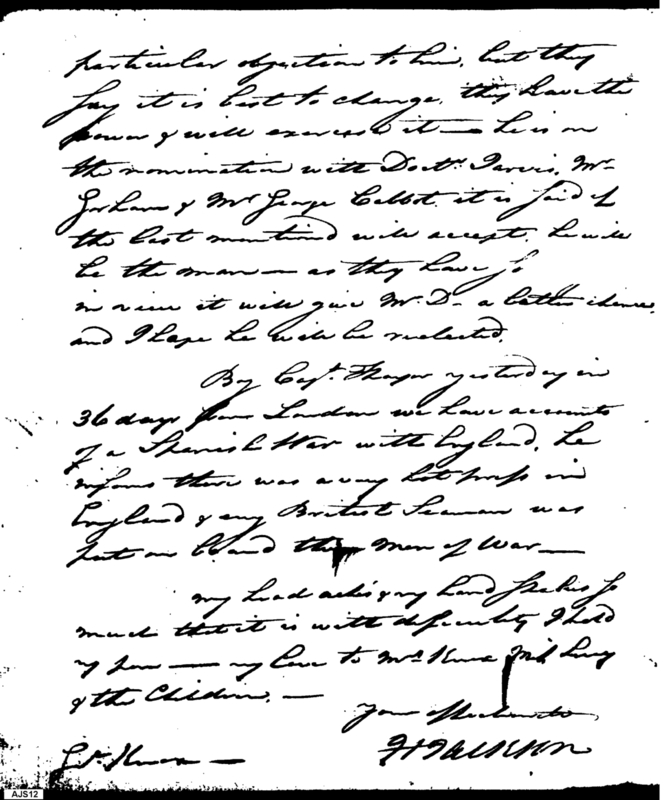 particular objection to him, but they
say it is best to change, they have the
power & will exercise it — he is on
the nomination with Doctr. Jarvis, Mr
Gorham & Mr George Cabbot, it is said if
the last mentioned will accept, he will
be the man — as they have so
in view it will give Mr. D— a better chance,
and I hope he will be reelected.
By Capt. Thayer yesterday in
36 days from London we have accounts
of a Spanish War with England, he
informs there was a very hot press in
England & any British Seaman was
put on board the Men of War —
my head aches & my hand shakes so
much that it is with difficulty I hold
my pen — my love to Mrs Knox Miss Lucy
& the Children. —
Your affectionate
H Jackson
Gl. Knox —
AJS12